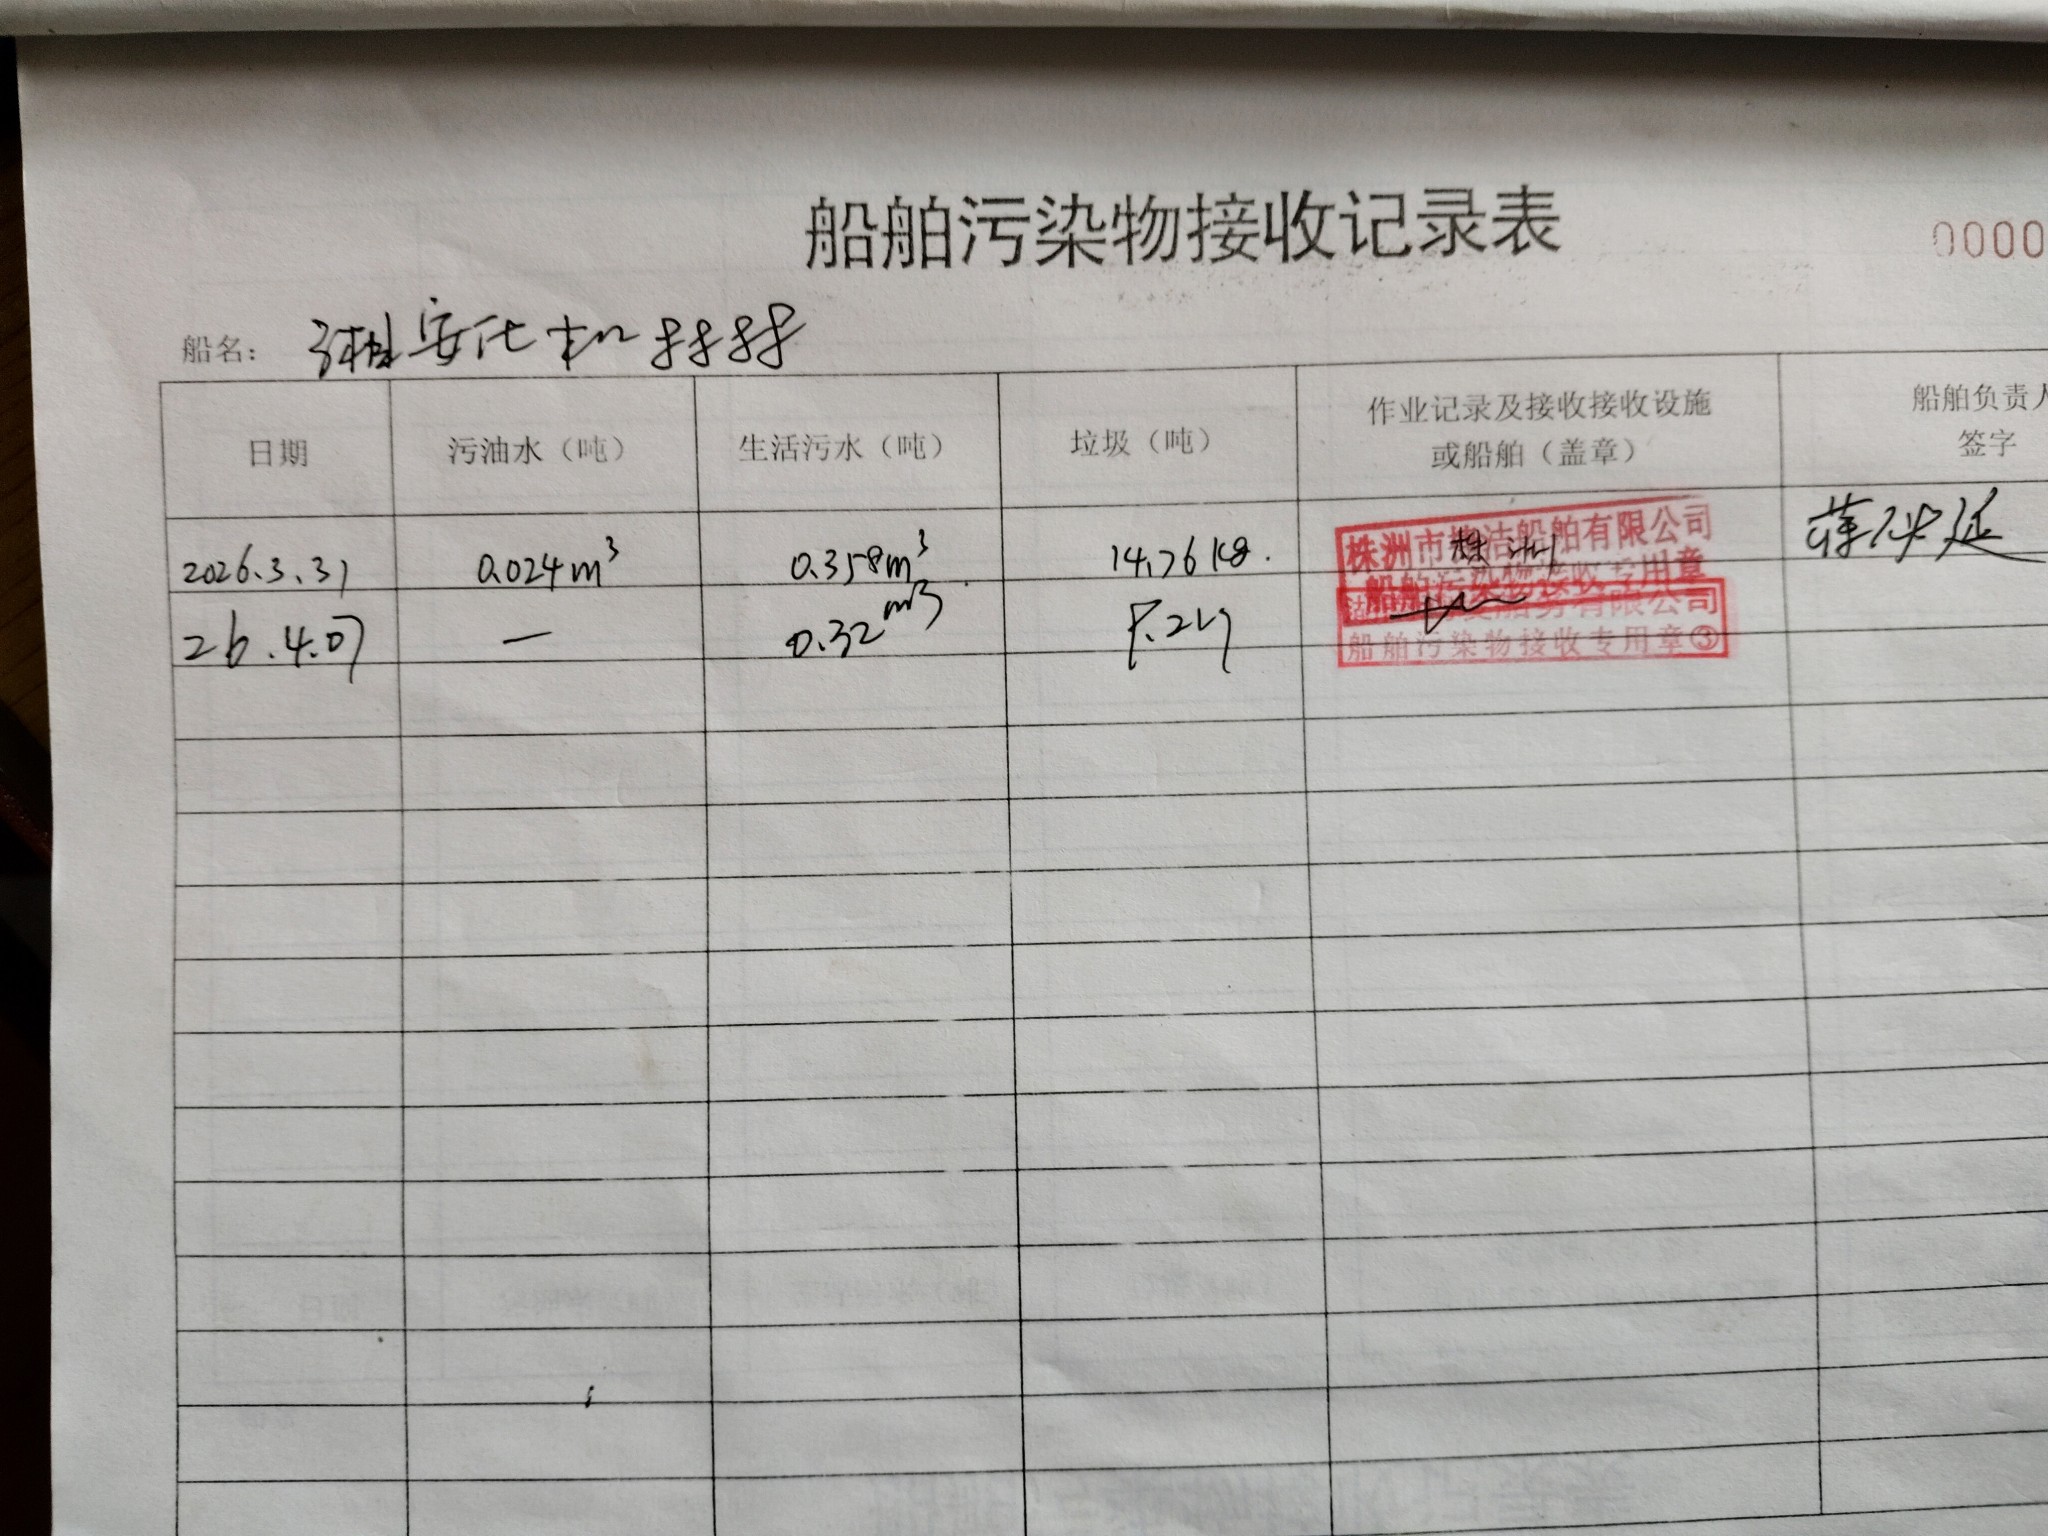 船舶污染物接收记录表
0000
船名: 湘安化机8888
日期 污油水（吨） 生活污水（吨） 垃圾（吨） 作业记录及接收接收设施或船舶（盖章） 船舶负责人签字
2026.3.31 0.024m³ 0.358m³ 14.76kg. 株洲
株洲市 洁船舶有限公司
船舶污染物接收专用章
26.4.07 — 0.32m³
有限公司
船舶污染物接收专用章③